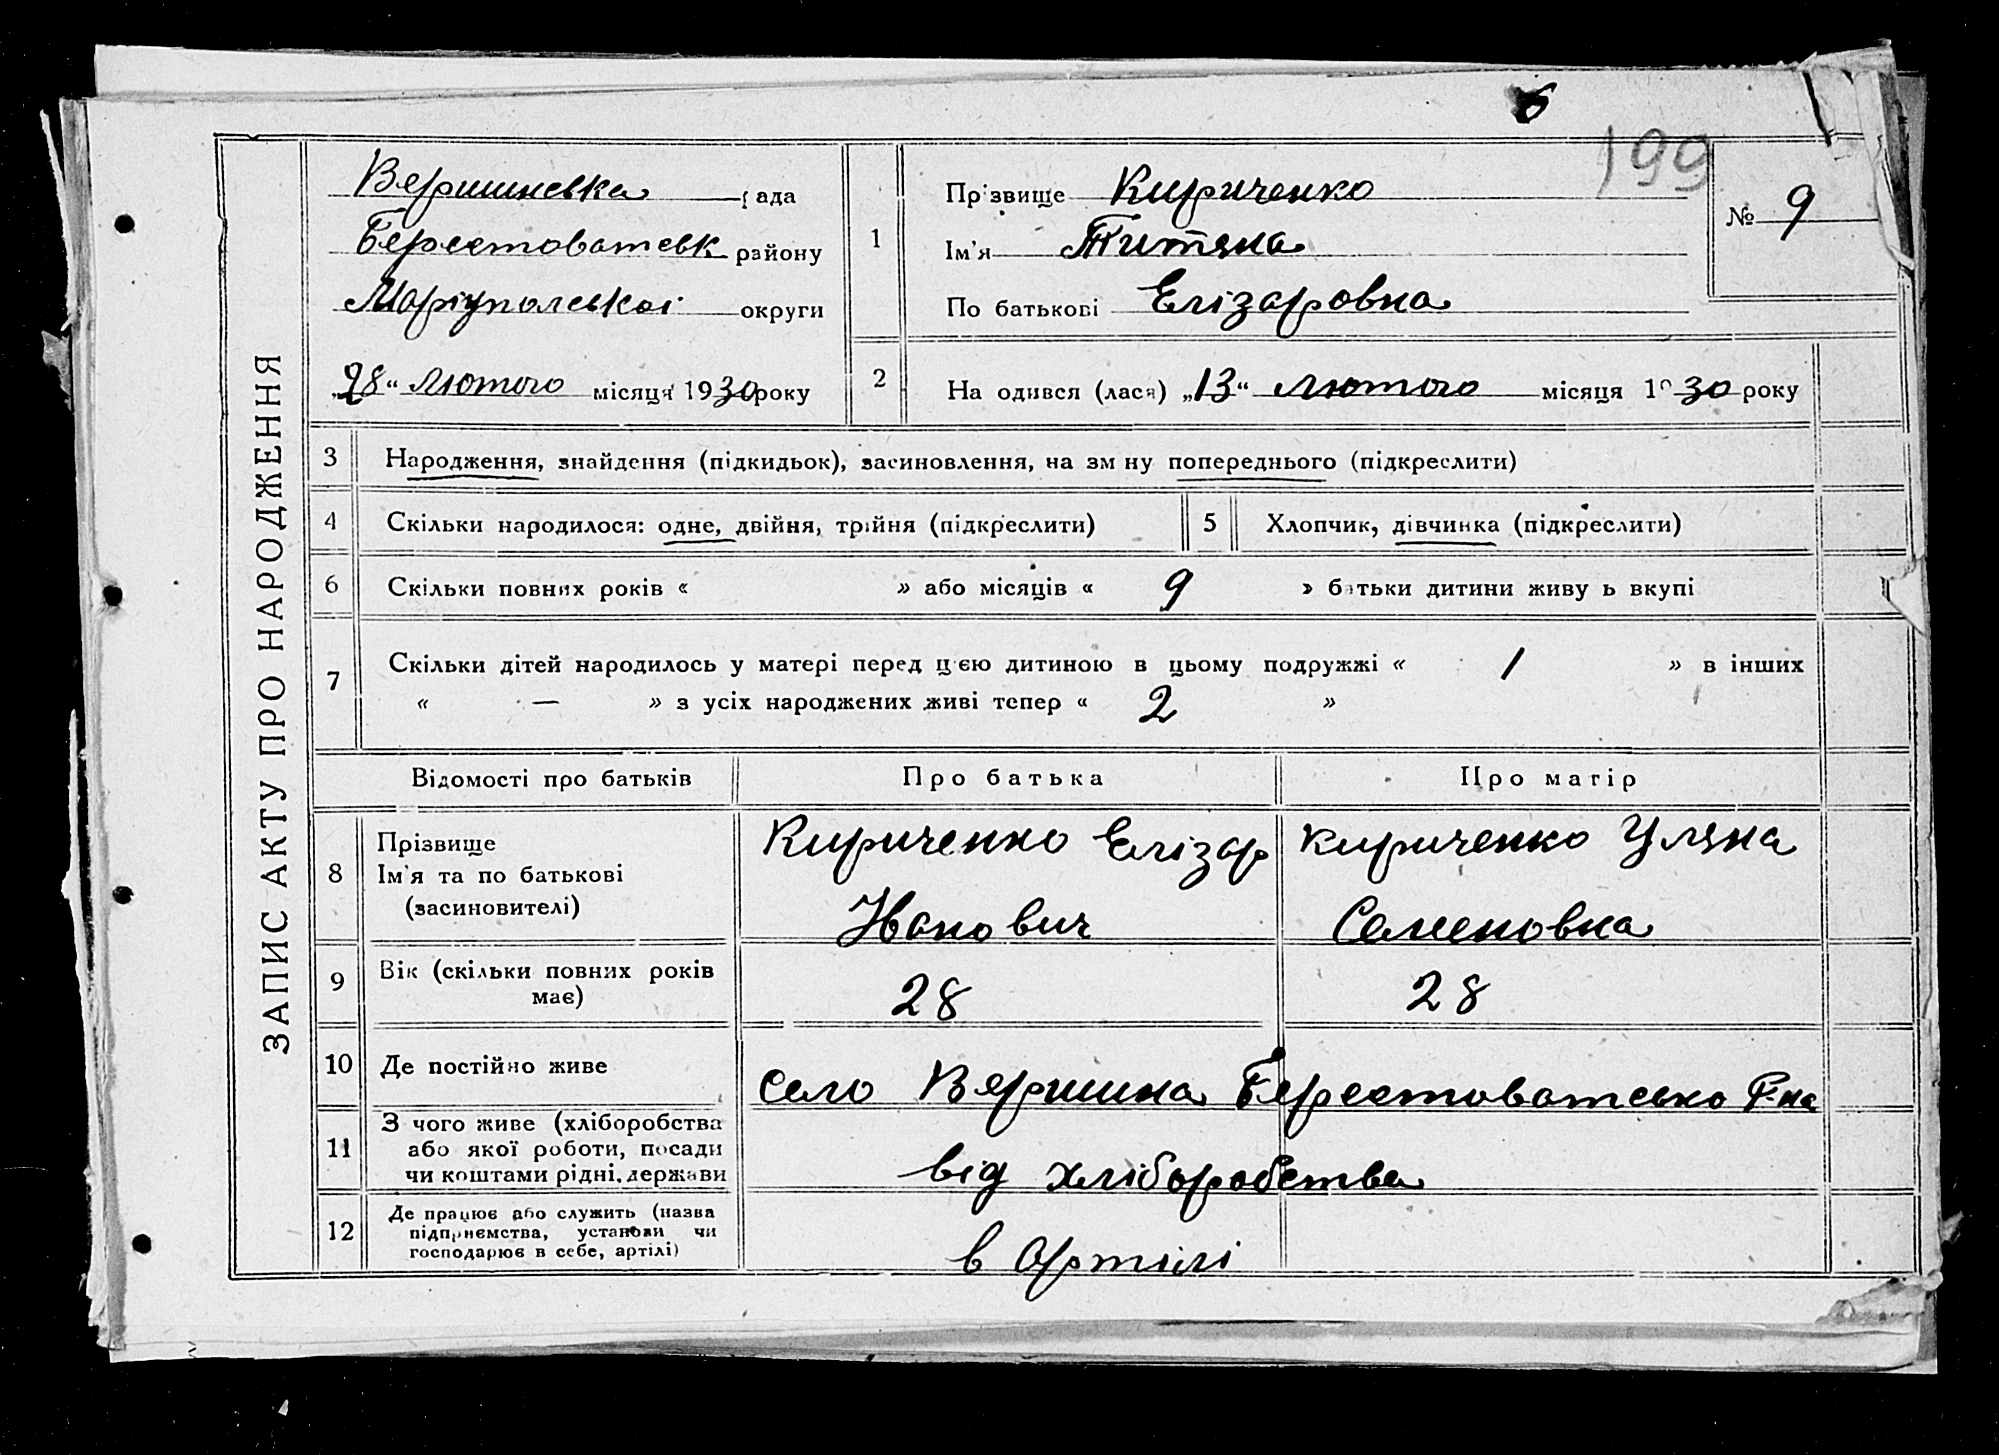 199
ЗАПИС АКТУ ПРО НАРОДЖЕННЯ
Вершинська рада
Берестоватськ району
Маріупольскоі округи
„28“ Лютого місяця 1930 року
1
Прізвище Кириченко
Ім'я Титяна
По батькові Елізаровна
№ 9
2
На одився (лася) „13“ Лютого місяця 19 30 року
3 Народження, знайдення (підкидьок), засиновлення, на зм ну попереднього (підкреслити)
4 Скільки народилося: одне, двійня, трійня (підкреслити)
5 Хлопчик, дівчинка (підкреслити)
6 Скільки повних років « » або місяців « 9 » батьки дитини живу ь вкупі
7 Скільки дітей народилось у матері перед цією дитиною в цьому подружжі « 1 » в інших
« — » з усіх народжених живі тепер « 2 »
Відомості про батьків Про батька Про матір
8 Прізвище
Ім'я та по батькові
(засиновителі)
Кириченко Елізар
Иванович
Кириченко Уляна
Семеновна
9 Вік (скільки повних років
має)
28 28
10 Де постійно живе
село Вершина Берестоватсько Р-на
11 З чого живе (хліборобства
або якої роботи, посади
чи коштами рідні, держави
від хліборобства
12 Де працює або служить (назва
підприємства, установи чи
господарює в себе, артілі)
в Артілі